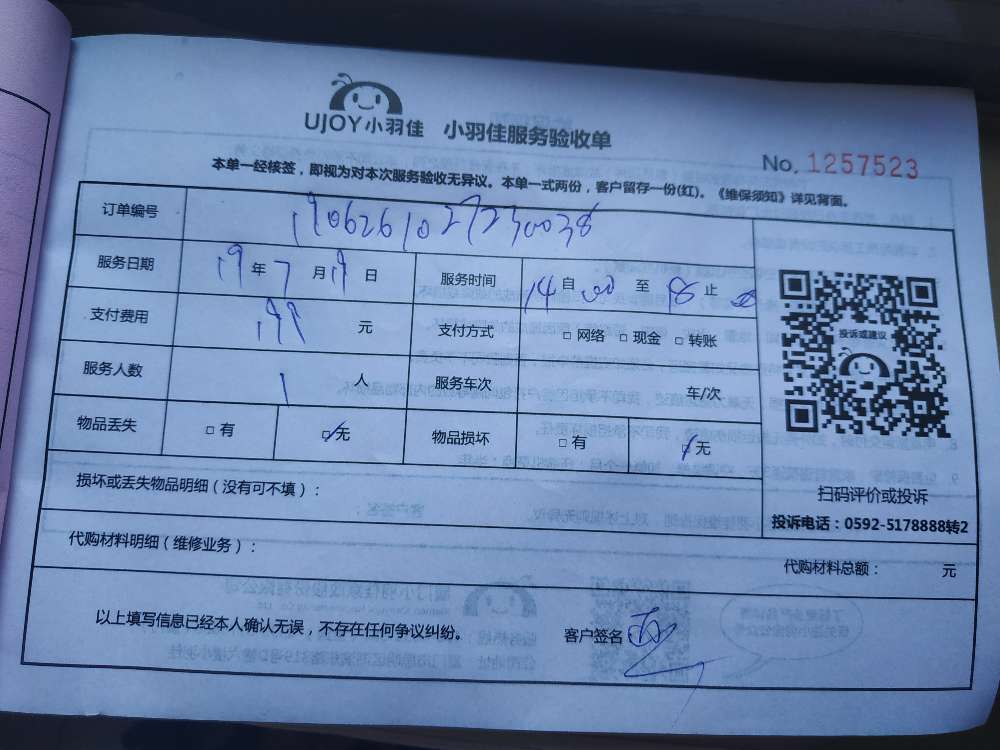 UJOY小羽佳 小羽佳服务验收单
No. 1257523
本单一经核签，即视为对本次服务验收无异议。本单一式两份，客户留存一份(红)。《维保须知》详见背面。
订单编号 1906261027230038
服务日期 19年7月19日 服务时间 14自00至18止00
支付费用 199元 支付方式 □网络 □现金 □转账
投诉或建议
服务人数 1人 服务车次 车/次
物品丢失 □有 ☑无 物品损坏 □有 ☑无
损坏或丢失物品明细（没有可不填）：
扫码评价或投诉
投诉电话：0592-5178888转2
代购材料明细（维修业务）：
代购材料总额： 元
以上填写信息已经本人确认无误，不存在任何争议纠纷。 客户签名